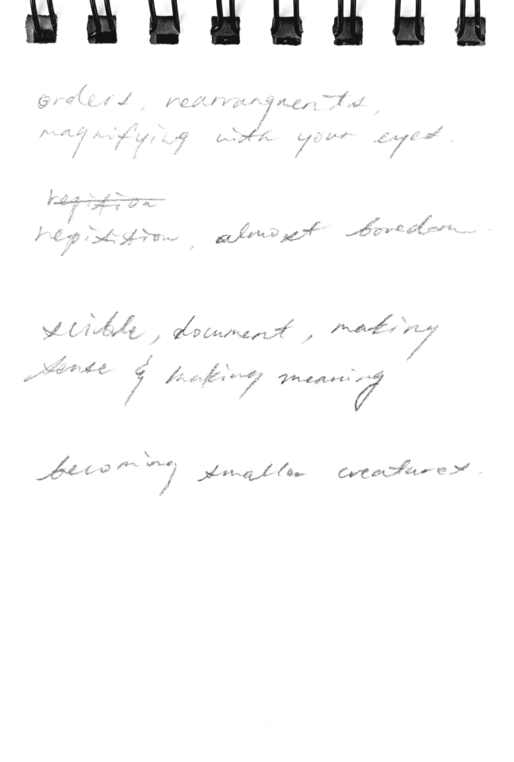 orders, rearrangments,
magnifying with your eyes.
regition
regitition, almost boredom.
scible, document, making
sense & making meaning
becoming smaller creatures.